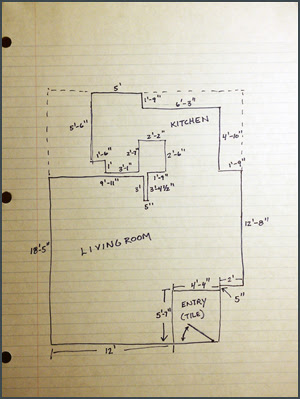 5'
1'-9"
6'-3"
KITCHEN
5'-6"
4'-10"
2'-2"
1'-6"
1'
3'-1"
2'-7"
2'-6"
1'-9"
1'-9"
9'-11"
3'
3'-4½"
5"
18'-5"
LIVING ROOM
12'-8"
4'-4"
2'
5"
ENTRY
(TILE)
5'-7"
12'